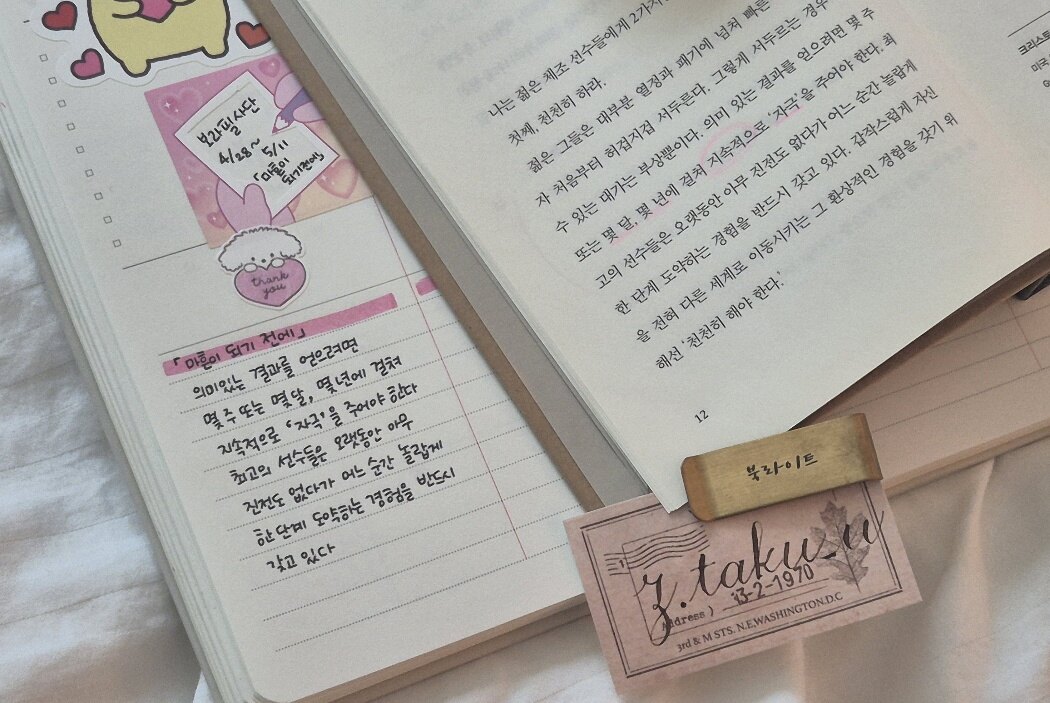 보라필사단
4/28~
5/11
「마흔이
되기전에」
thank
you
「마흔이 되기 전에」
의미있는 결과를 얻으려면
몇 주 또는 몇달, 몇년에 걸쳐
지속적으로 '자극'을 주어야 한다
최고의 선수들은 오랫동안 아무
진전도 없다가 어느순간 놀랍게
한단계 도약하는 경험을 반드시
갖고 있다
나는 젊은 체조 선수들에게 2가지
첫째, 천천히 하라.
젊은 그들은 대부분 열정과 패기에 넘쳐 빠른
자 처음부터 허겁지겁 서두른다. 그렇게 서두르는 경우
수 있는 대가는 부상뿐이다. 의미 있는 결과를 얻으려면 몇 주
또는 몇 달, 몇 년에 걸쳐 지속적으로 '자극'을 주어야 한다. 최
고의 선수들은 오랫동안 아무 진전도 없다가 어느 순간 놀랍게
한 단계 도약하는 경험을 반드시 갖고 있다. 갑작스럽게 자신
을 전혀 다른 세계로 이동시키는 그 환상적인 경험을 갖기 위
해선 '천천히 해야 한다.'
12
크리스토
미국
북라이트
z.taku_u
Address )
3-2-1970
3rd & M STS. N.E,WASHINGTON.D.C